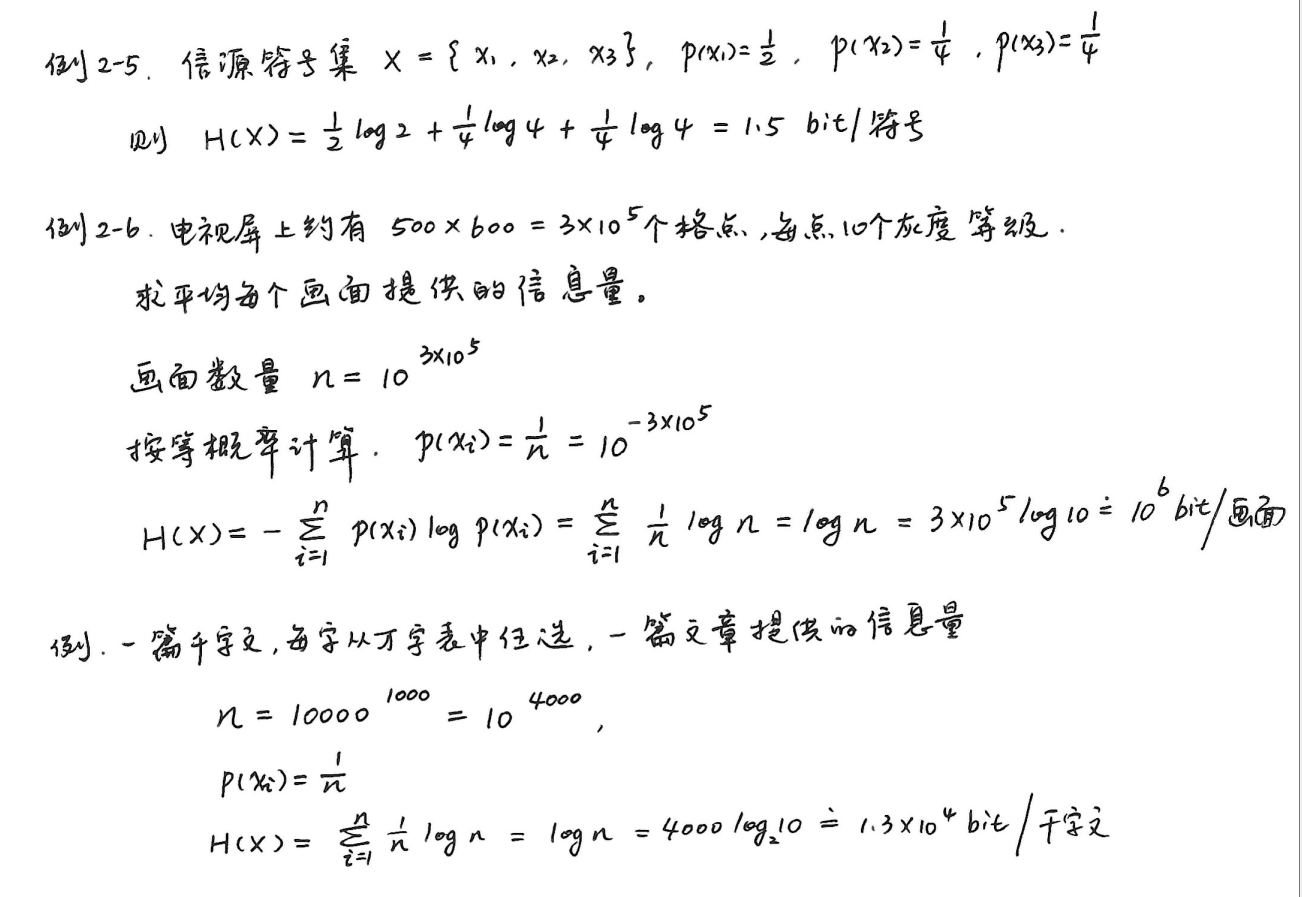 例2-5. 信源符号集 X = { x₁, x₂, x₃}, p(x₁)=1/2, p(x₂)=1/4, p(x₃)=1/4
则 H(X) = 1/2 log 2 + 1/4 log 4 + 1/4 log 4 = 1.5 bit/符号
例2-6. 电视屏上约有 500×600 = 3×10⁵个格点,每点10个灰度等级.
求平均每个画面提供的信息量。
画面数量 n = 10^(3×10⁵)
按等概率计算. p(xᵢ) = 1/n = 10^(-3×10⁵)
H(X) = - ∑_{i=1}^{n} p(xᵢ) log p(xᵢ) = ∑_{i=1}^{n} 1/n log n = log n = 3×10⁵ log 10 ≐ 10⁶ bit/画面
例. 一篇千字文,每字从万字表中任选,一篇文章提供的信息量
n = 10000^1000 = 10^4000,
p(xᵢ) = 1/n
H(X) = ∑_{i=1}^{n} 1/n log n = log n = 4000 log₂10 ≐ 1.3×10⁴ bit/千字文